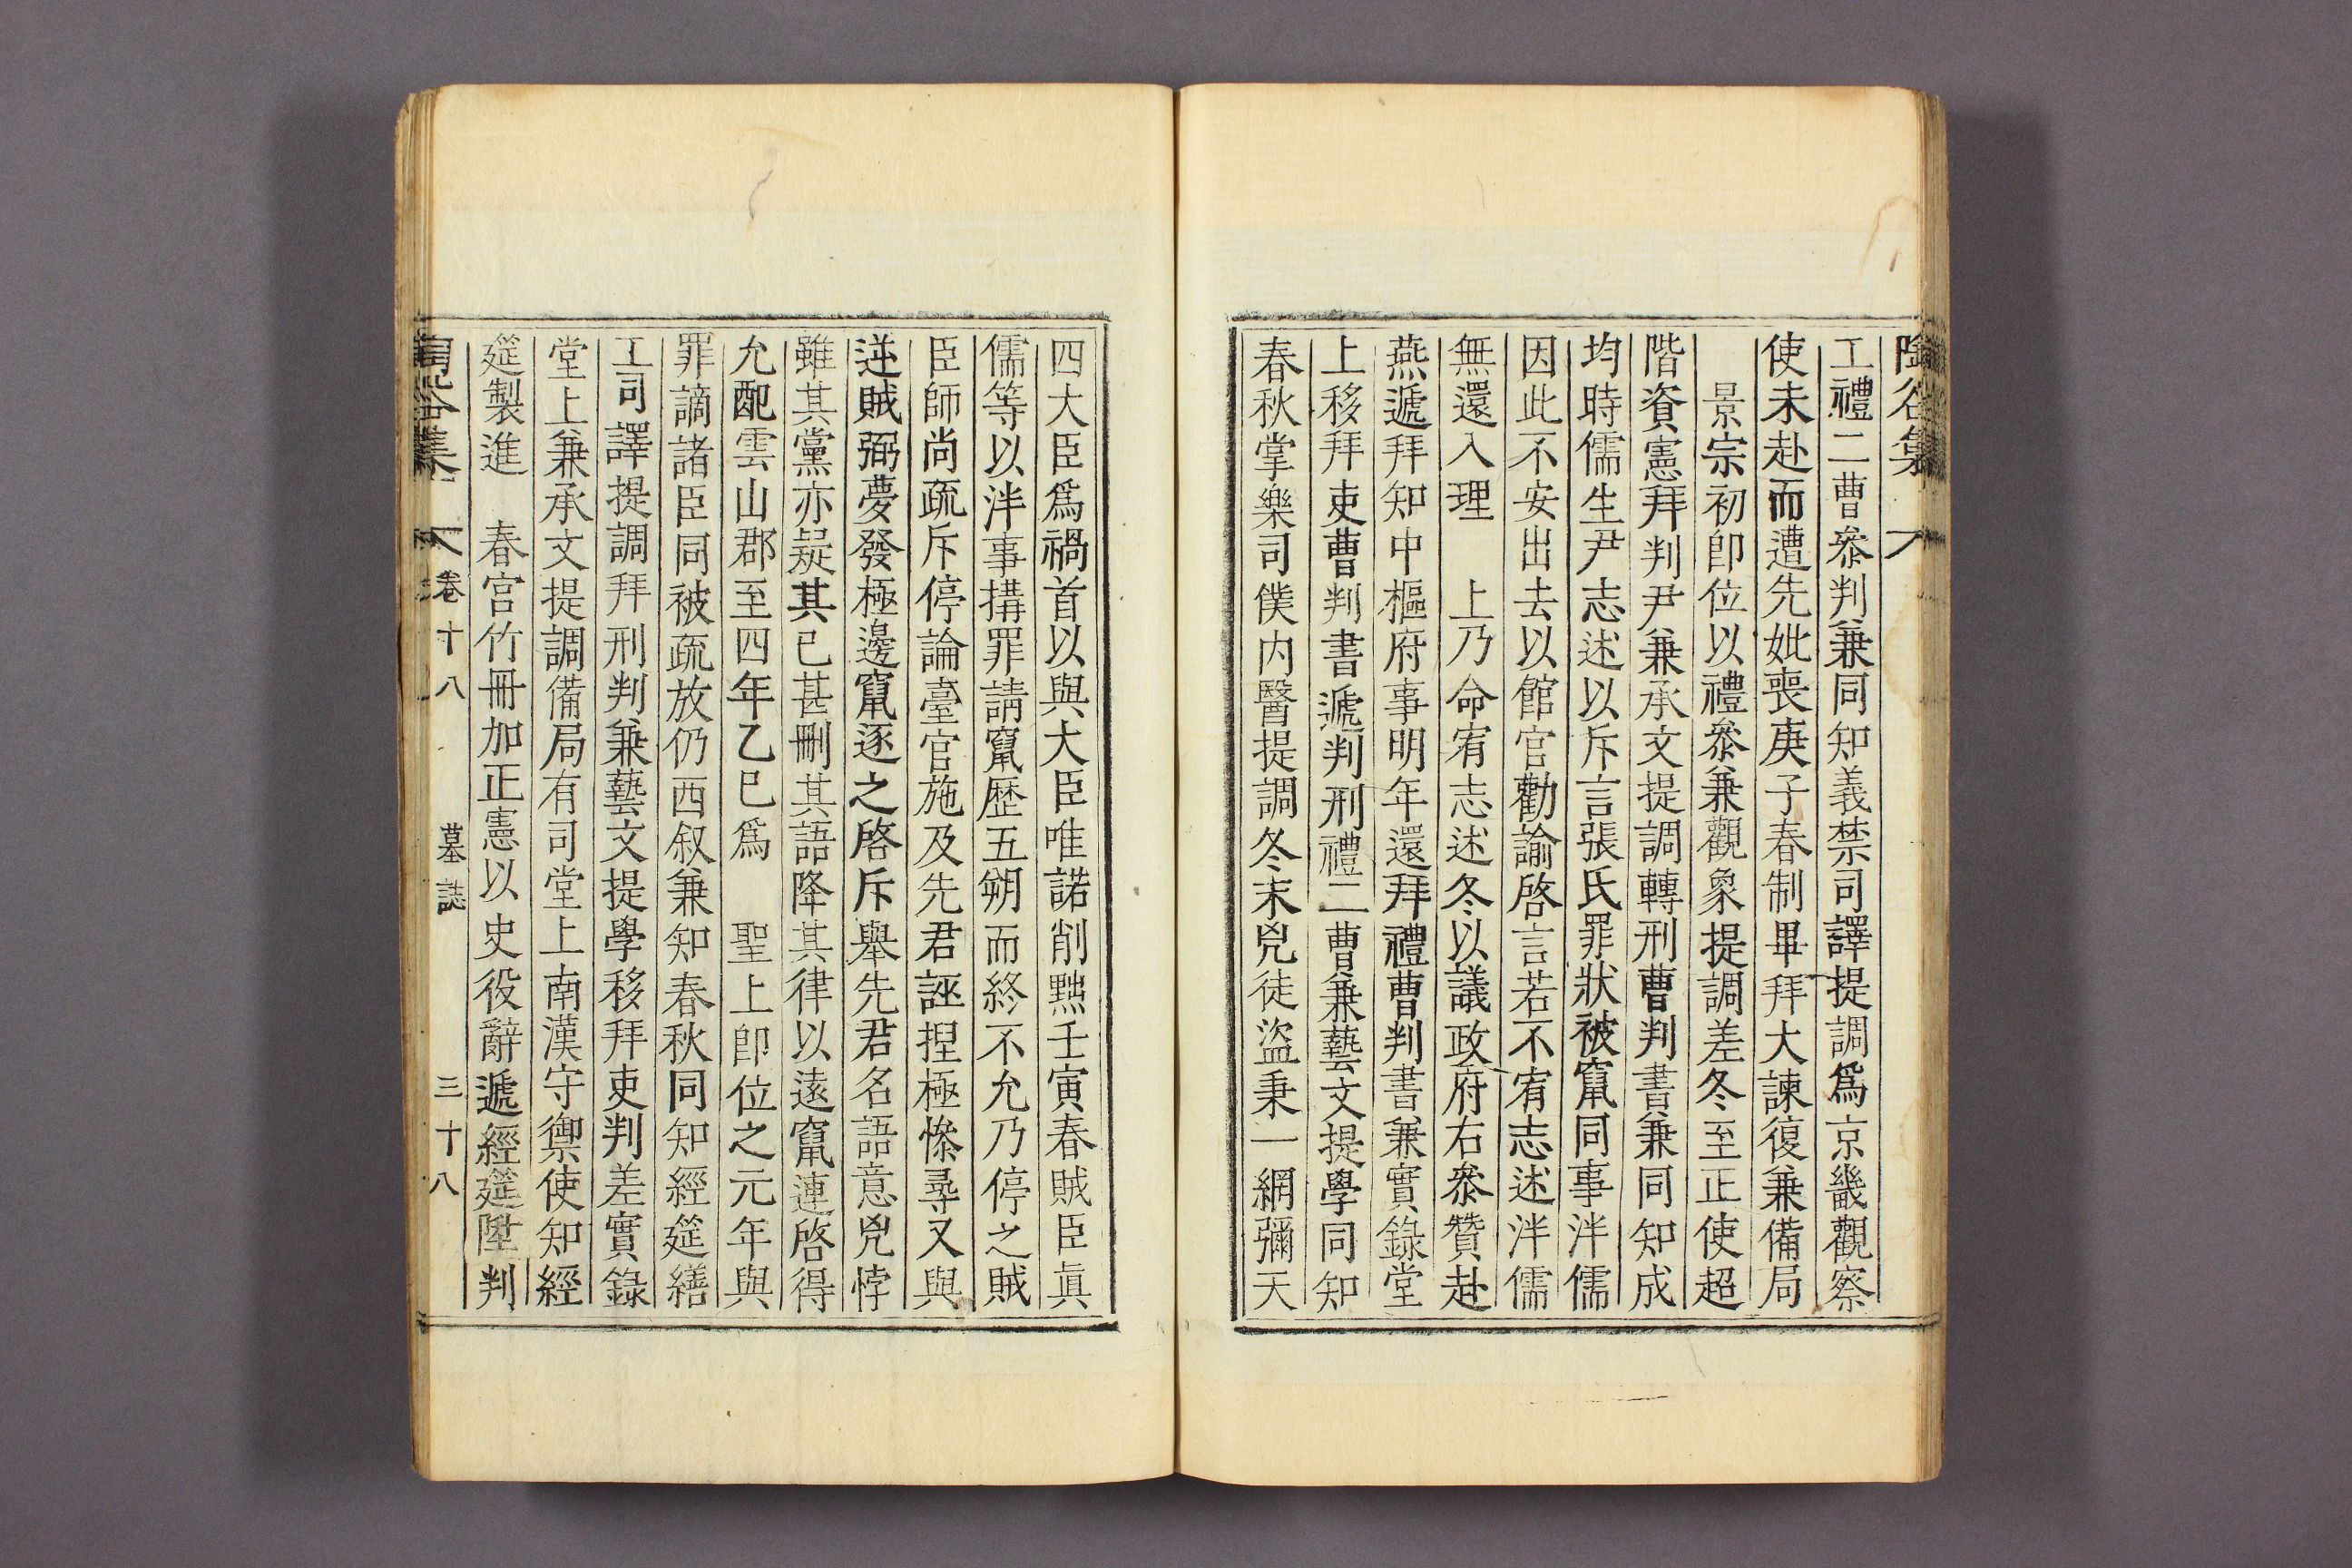 陶谷集
工禮二曹叅判兼同知義禁司譯提調爲京畿觀察
使未赴而遭先妣喪庚子春制畢拜大諫復兼備局
景宗初卽位以禮叅兼觀象提調差冬至正使超
階資憲拜判尹兼承文提調轉刑曹判書兼同知成
均時儒生尹志述以斥言張氏罪狀被竄同事泮儒
因此不安出去以館官勸諭啓言若不宥志述泮儒
無還入理　上乃命宥志述冬以議政府右叅贊赴
燕遞拜知中樞府事明年還拜禮曹判書兼實錄堂
上移拜吏曹判書遞判刑禮二曹兼藝文提學同知
春秋掌樂司僕内醫提調冬末兇徒盜秉一網彌天
四大臣爲禍首以與大臣唯諾削黜壬寅春賊臣眞
儒等以泮事搆罪請竄歷五朔而終不允乃停之賊
臣師尚疏斥停論臺官施及先君誣捏極慘㝷又與
逆賊弼夢發極邊竄逐之啓斥舉先君名語意兇悖
雖其黨亦疑其已甚刪其語降其律以遠竄連啓得
允配雲山郡至四年乙巳爲　聖上卽位之元年與
罪謫諸臣同被疏放仍西叙兼知春秋同知經筵繕
工司譯提調拜刑判兼藝文提學移拜吏判差實錄
堂上兼承文提調備局有司堂上南漢守禦使知經
筵製進　春宮竹冊加正憲以史役辭遞經筵陞判
陶谷集　卷十八　墓誌　三十八